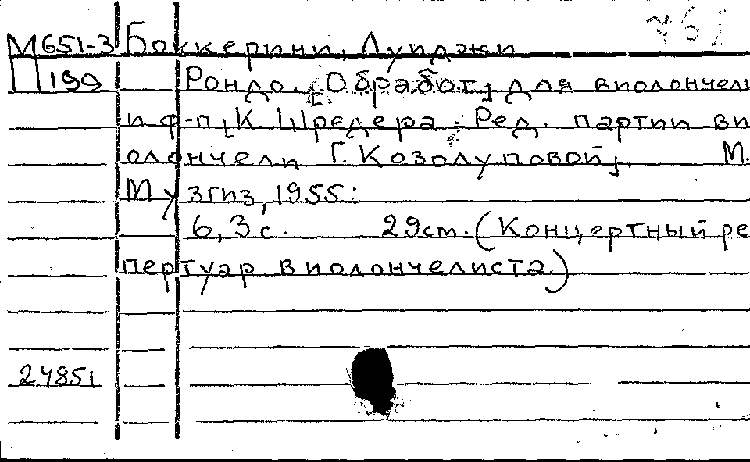 М651-3 Боккерини, Луиджи
П199 Рондо. [Обработ. для виолончели
и ф-п. К. Шредера. Ред. партии ви
олончели Г. Козолуповой]. М.
Музгиз, 1955.
6, 3 с. 29см. (Концертный ре
пертуар виолончелиста)
24851